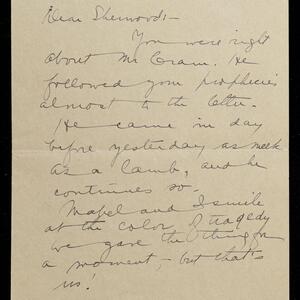 Dear Sherwood:-
You were right
about Mr Cram. He
followed your prophecies
almost to the letter.
He came in day
before yesterday as meek
as a lamb, and he
continues so.
Mabel and I smile
at the color of tragedy
we gave the thing for
a moment, - but that's
us!